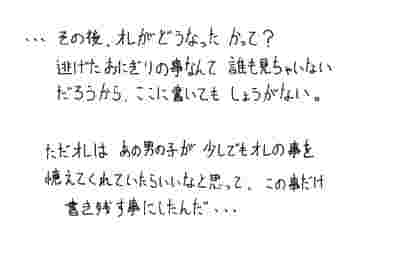 ... その後、オレがどうなったかって?
逃げたおにぎりの事なんて 誰も見ちゃいない
だろうから、ここに書いても しょうがない。
ただオレは あの男の子が 少しでもオレの事を
憶えてくれていたらいいなと思って、この事だけ
書き残す事にしたんだ・・・